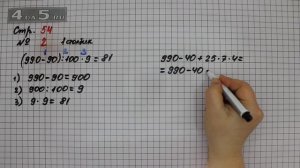 4АБ.RU
Стр. 54
№ 2 1 столбик
1 2 3
(990-90):100·9=81
1) 990-90=900
2) 900:100=9
3) 9·9=81
990-40+25·7·4=
=990-40